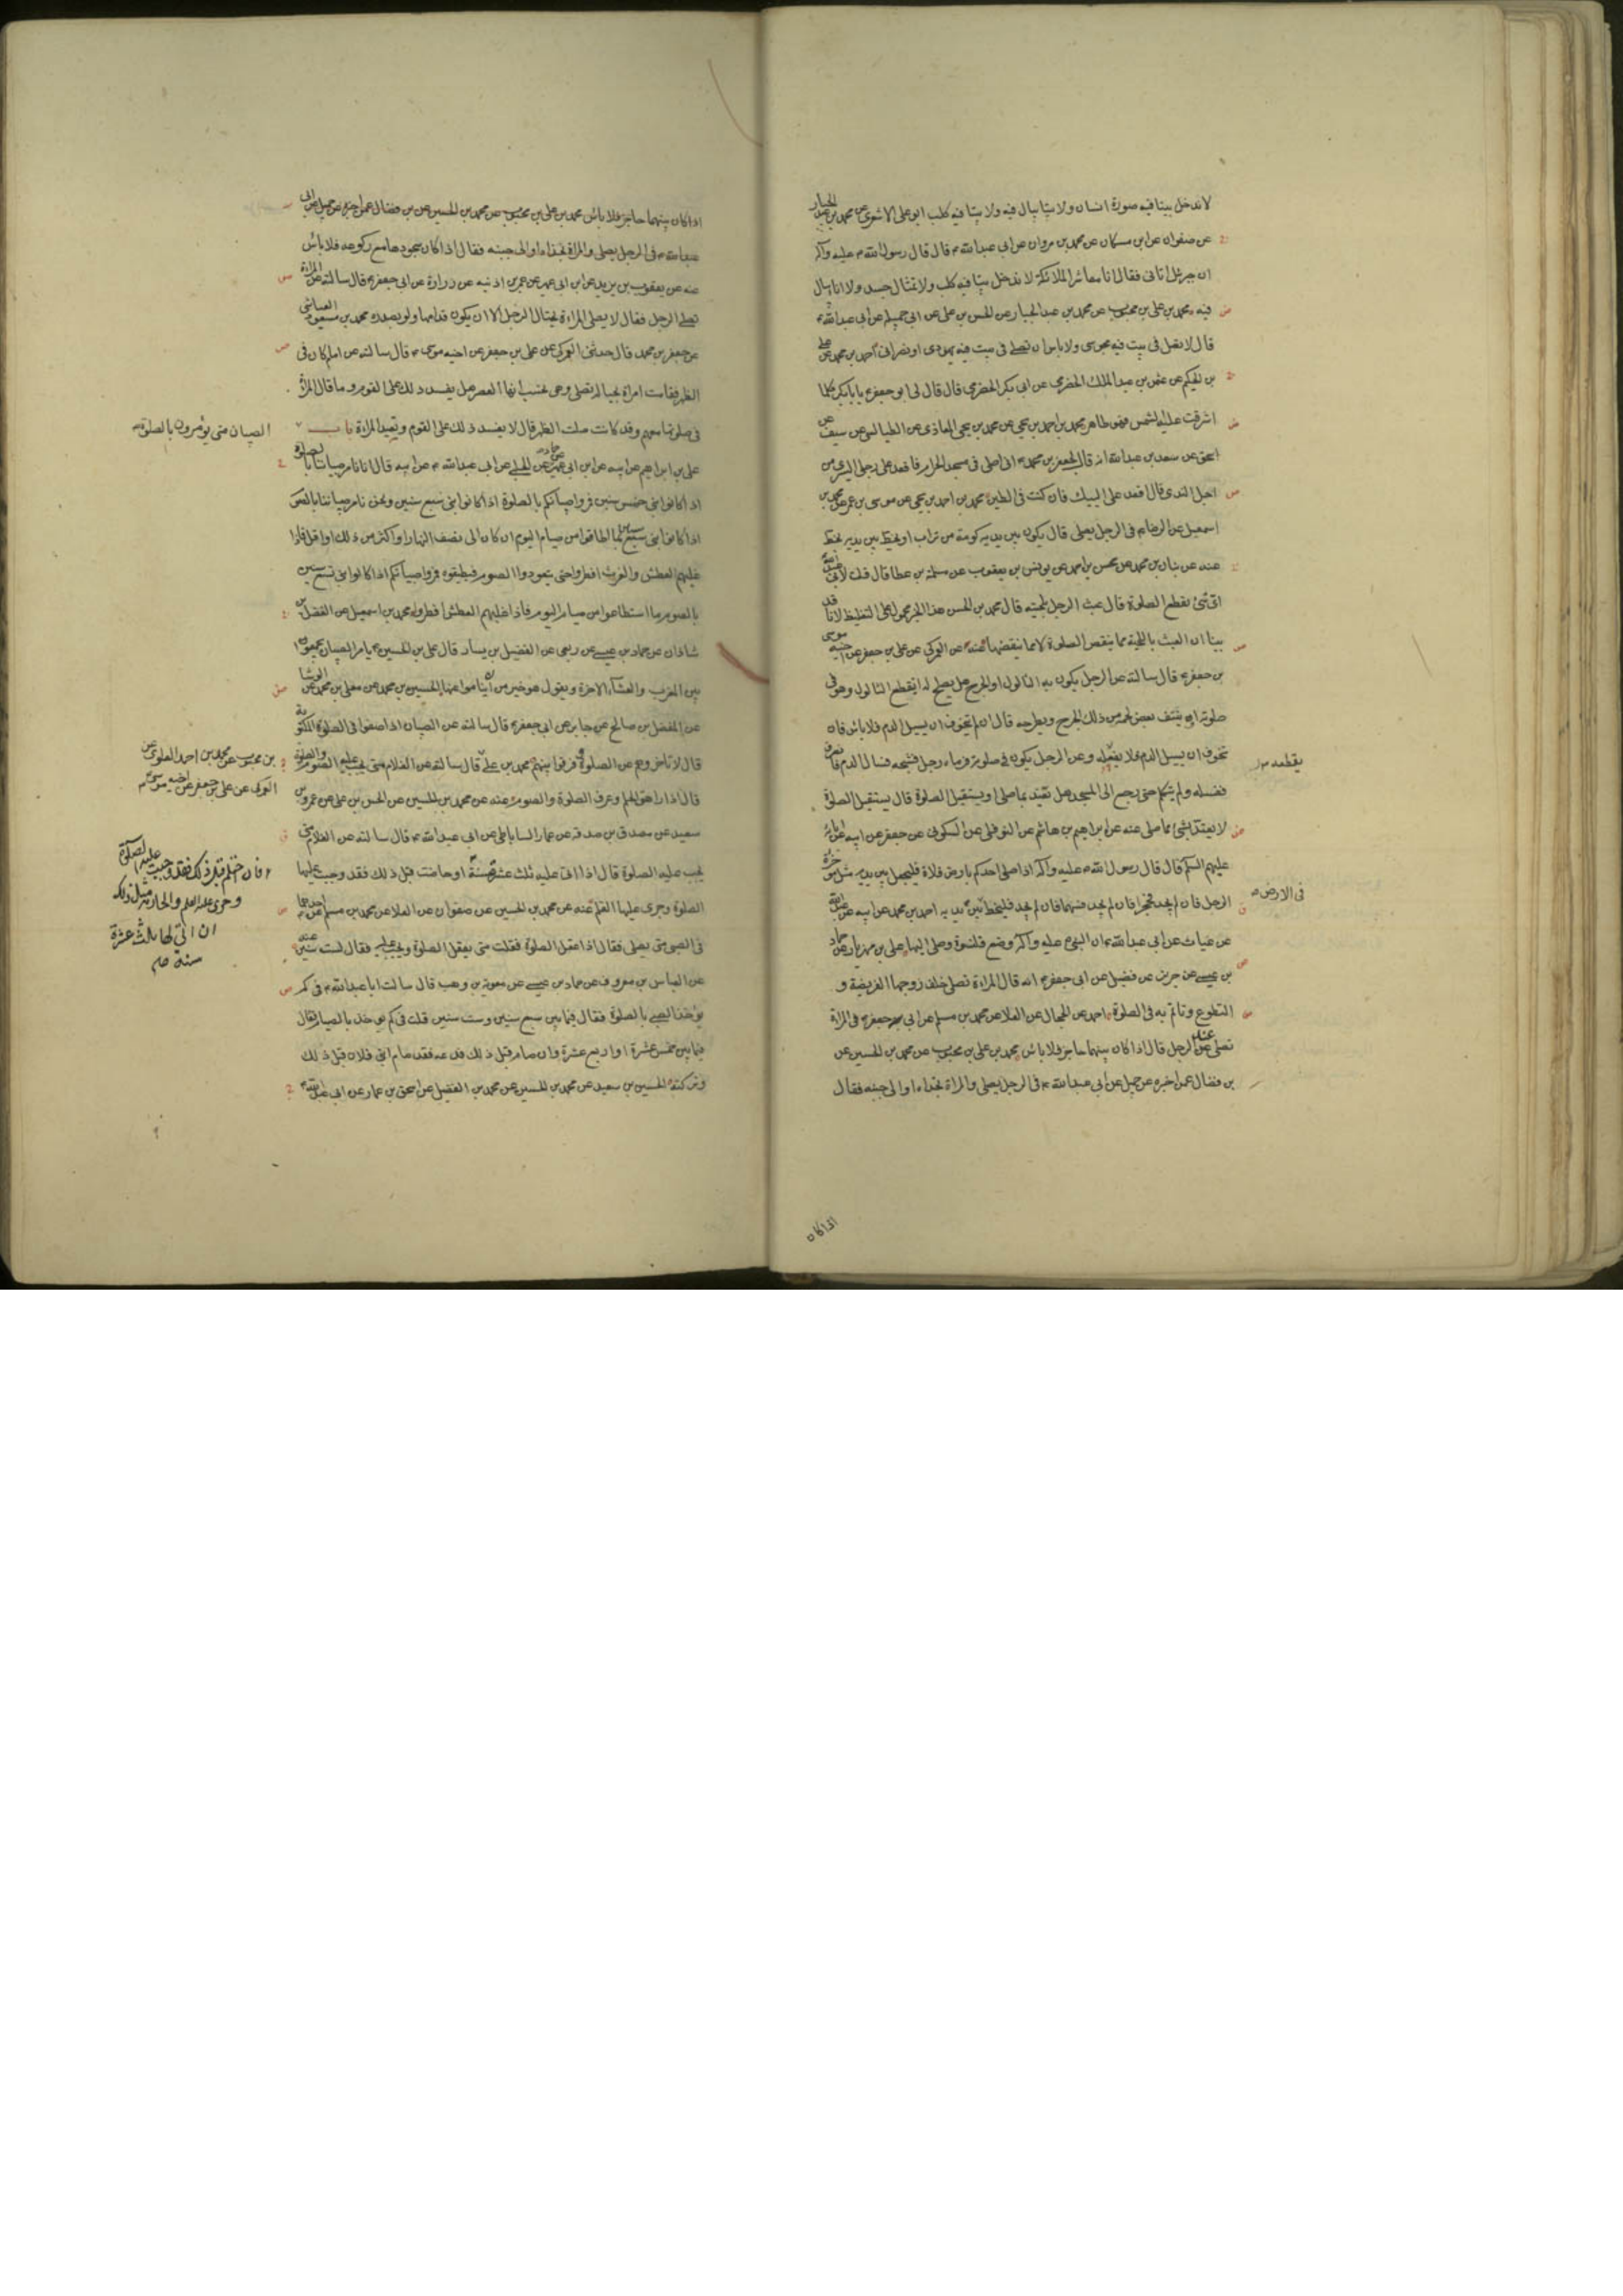 لا ندخل بيتا فيه صورة انسان ولا بيتا يبال فيه ولا بيتا فيه كلب ابو على الاشعرى عن محمد بن عبد الجبار
عن صفوان عن ابن مسكان عن محمد بن مروان عن ابى عبد الله ع قال قال رسول الله ص عليه وآله
ان جبرئيل اتانى فقال انا معاشر الملائكة لا ندخل بيتا فيه كلب ولا تمثال جسد ولا اناء يبال
فيه محمد بن على بن محبوب عن محمد بن عبد الجبار عن الحسن بن على عن ابى جميلة عن ابى عبد الله ع
قال لا تصل فى بيت فيه مجوسى ولا باس ان تصلى فى بيت فيه يهودى او نصرانى احمد بن محمد عن على
بن الحكم عن عثمن بن عبد الملك الحضرمى عن ابى بكر الحضرمى قال قال لى ابو جعفر ع يا با بكر كلما
اشرقت عليه الشمس فهو طاهر محمد بن احمد بن يحيى عن محمد بن يحيى المعاذى عن الطيالسى عن سيف بن
اسحق عن سعد بن عبد الله انه قال لجعفر بن محمد ع انى اصلى فى مسجد الحرام فاقعد على رجلى اليسرى من
اجل الندى قال اقعد على اليتيك فان كنت فى الطين محمد بن احمد بن يحيى عن موسى بن عمر عن محمد بن
اسمعيل عن الرضا ع فى الرجل يصلى قال يكون بين يديه كومة من تراب او يخط بين يديه بخط
عنه عن بنان بن محمد عن محسن بن احمد عن يونس بن يعقوب عن مسلمة بن عطا قال قلت لابى عبد الله
اى شئ يقطع الصلوة قال عبث الرجل بلحيته قال محمد بن الحسن هذا الخبر محمول على التغليظ لانا قد
بينا ان العبث باللحية مما ينقص الصلوة لا مما ينقضها عنه عن العمركى عن على بن جعفر عن اخيه موسى
بن جعفر ع قال سالته عن الرجل يكون به الثالول او الجرح هل يصلح له ان يقطع الثالول وهو فى
صلوته او ينتف بعض لحمه من ذلك الجرح ويطرحه قال ان لم يتخوف ان يسيل الدم فلا باس فان
تخوف ان يسيل الدم فلا يفعله وعن الرجل يكون فى صلوته فرماه رجل فشجه فسال الدم فانصرف
يقطعه
فغسله ولم يتكلم حتى رجع الى المسجد هل يعتد بما صلى او يستقبل الصلوة قال يستقبل الصلوة
لا يعتد بشئ مما صلى عنه عن ابراهيم بن هاشم عن النوفلى عن السكونى عن جعفر عن ابيه عن ابائه
عليهم السلم قال قال رسول الله ص عليه وآله اذا صلى احدكم بارض فلاة فليجعل بين يديه مثل مؤخرة
الرحل فان لم يجد فحجرا فان لم يجد فسهما فان لم يجد فليخط بين يديه احمد بن محمد عن ابيه عن عبد الله
فى الارض
عن غياث عن ابى عبد الله ع ان النبى ص عليه وآله وضع قلنسوة وصلى اليها على بن مهزيار عن حماد
بن عيسى عن حريز عن فضيل عن ابى جعفر ع انه قال المراة تصلى خلف زوجها الفريضة و
التطوع وتاتم به فى الصلوة احمد عن الحجال عن العلا عن محمد بن مسلم عن ابى جعفر ع فى المراة
تصلى عند الرجل قال اذا كان بينهما حاجز فلا باس محمد بن على بن محبوب عن محمد بن الحسين عن
بن فضال عمن اخبره عن جميل عن ابى عبد الله ع فى الرجل يصلى والمراة بحذاه او الى جنبه فقال
اذا كان
اذا كان بينهما حاجز فلا باس محمد بن على بن محبوب عن محمد بن الحسين عن بن فضال عمن اخبره عن جميل عن ابى
عبد الله ع فى الرجل يصلى والمراة بحذاه او الى جنبه فقال اذا كان سجودها مع ركوعه فلا باس
عنه عن يعقوب بن يزيد عن ابن ابى عمير عن عمر بن اذينه عن زرارة عن ابى جعفر ع قال سالته عن المراة
تصلى الرجل فقال لا يصلى المراة بحيال الرجل الا ان يكون قدامها ولو بصدره محمد بن مسعود العياشى
عن جعفر بن محمد قال حدثنى العمركى عن على بن جعفر عن اخيه موسى ع قال سالته عن امام كان فى
الظهر فقامت امراة بحياله تصلى وهى تحسب انها العصر هل يفسد ذلك على القوم وما قال المراة
فى صلوتها معهم وقد كانت صلت الظهر قال لا يفسد ذلك على القوم وتعيد المراة باب
الصبيان متى يؤمرون بالصلوة
على بن ابراهيم عن ابيه عن ابن ابى عمير عن حماد عن الحلبى عن ابى عبد الله ع عن ابيه قال انا نامر صبياننا بالصلوة
اذا كانوا بنى خمس سنين فمروا صبيانكم بالصلوة اذا كانوا بنى سبع سنين ونحن نامر صبياننا بالصوم
اذا كانوا بنى سبع سنين بما اطاقوا من صيام اليوم ان كان الى نصف النهار او اكثر من ذلك او اقل فاذا
غلبهم العطش والغرث افطروا حتى يتعودوا الصوم فيطيقوه فمروا صبيانكم اذا كانوا بنى تسع سنين
بالصوم ما استطاعوا من صيام اليوم فاذا غلبهم العطش افطروا محمد بن اسمعيل عن الفضل بن
شاذان عن حماد بن عيسى عن ربعى عن الفضيل بن يسار قال على بن الحسين ع يامر الصبيان يجمعون
بين المغرب والعشاء الاخرة ويقول هو خير من ان يناموا عنها الحسين بن محمد عن معلى بن محمد عن الوشا
عن المفضل بن صالح عن جابر عن ابى جعفر ع قال سالته عن الصبيان اذا صفوا فى الصلوة المكتوبة
قال لا تاخروهم عن الصلوة وفرقوا بينهم محمد بن على قال سالته عن الغلام متى يجب عليه الصوم والصلوة
بن محبوب عن محمد بن احمد العلوى عن
العمركى عن على بن جعفر عن اخيه موسى ع
قال اذا راهق الحلم وعرف الصلوة والصوم عنه عن محمد بن الحسين عن الحسن بن على عن عمرو بن
سعيد عن مصدق بن صدقه عن عمار الساباطى عن ابى عبد الله ع قال سالته عن الغلام متى
يجب عليه الصلوة قال اذا اتى عليه ثلث عشرة سنة او حاضت قبل ذلك فقد وجب عليها
فان احتلم قبل ذلك فقد وجبت عليه الصلوة
وجرى عليه القلم والجارية مثل ذلك
ان اتى لها ثلث عشرة
سنة
الصلوة وجرى عليها القلم عنه عن محمد بن الحسين عن صفوان عن العلا عن محمد بن مسلم عن احدهما
فى الصبى متى يصلى فقال اذا عقل الصلوة فقلت متى يعقل الصلوة ويجب عليه فقال لست سنين عنه
عن العباس بن معروف عن حماد بن عيسى عن معوية بن وهب قال سالت ابا عبد الله ع فى كم
يؤخذ الصبى بالصلوة فقال فيما بين سبع سنين وست سنين قلت فى كم يؤخذ بالصيام فقال
فيما بين خمس عشرة او اربع عشرة وان صام قبل ذلك فدعه فقد صام ابنى فلان قبل ذلك
وتركته الحسين بن سعيد عن محمد بن الحسين عن محمد بن الفضيل عن اسحق بن عمار عن ابى عبد الله ع